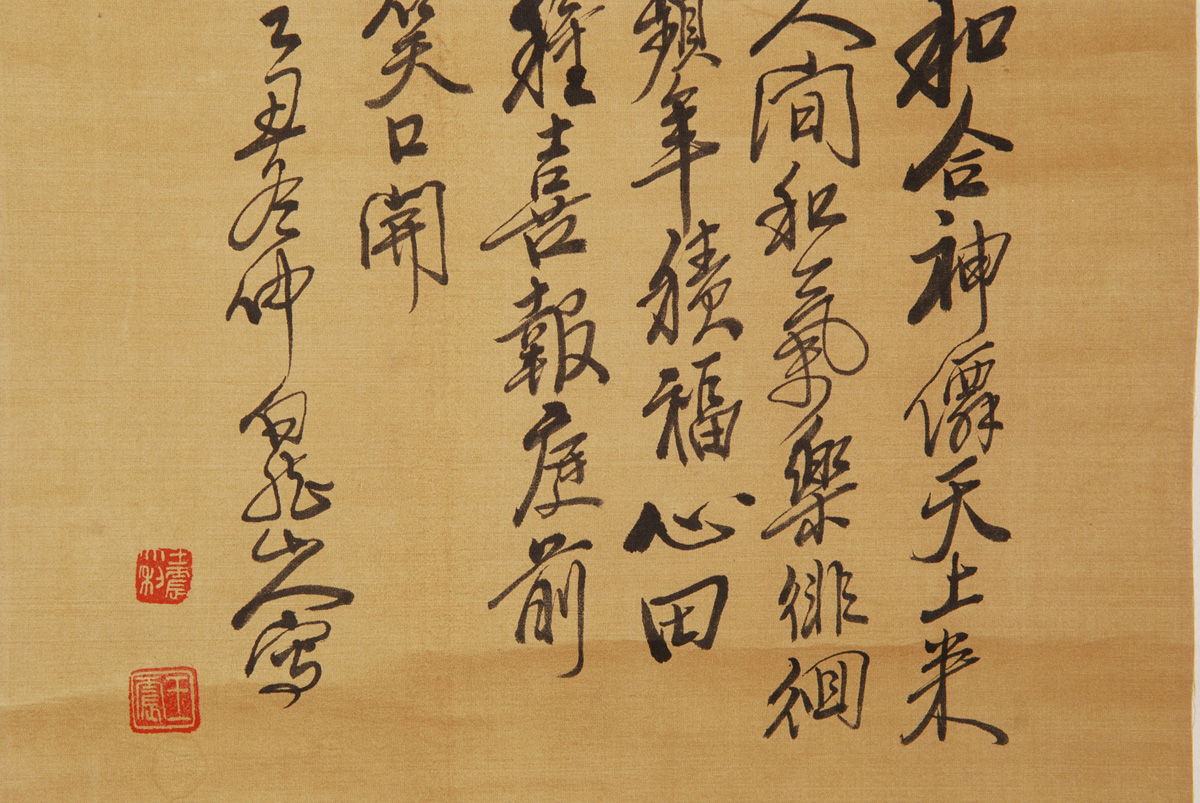 和合神僊天上来
人間和氣樂徘徊
頻年積福心田
種喜報庭前
笑口開
乙丑冬仲白龍山人寫
王震